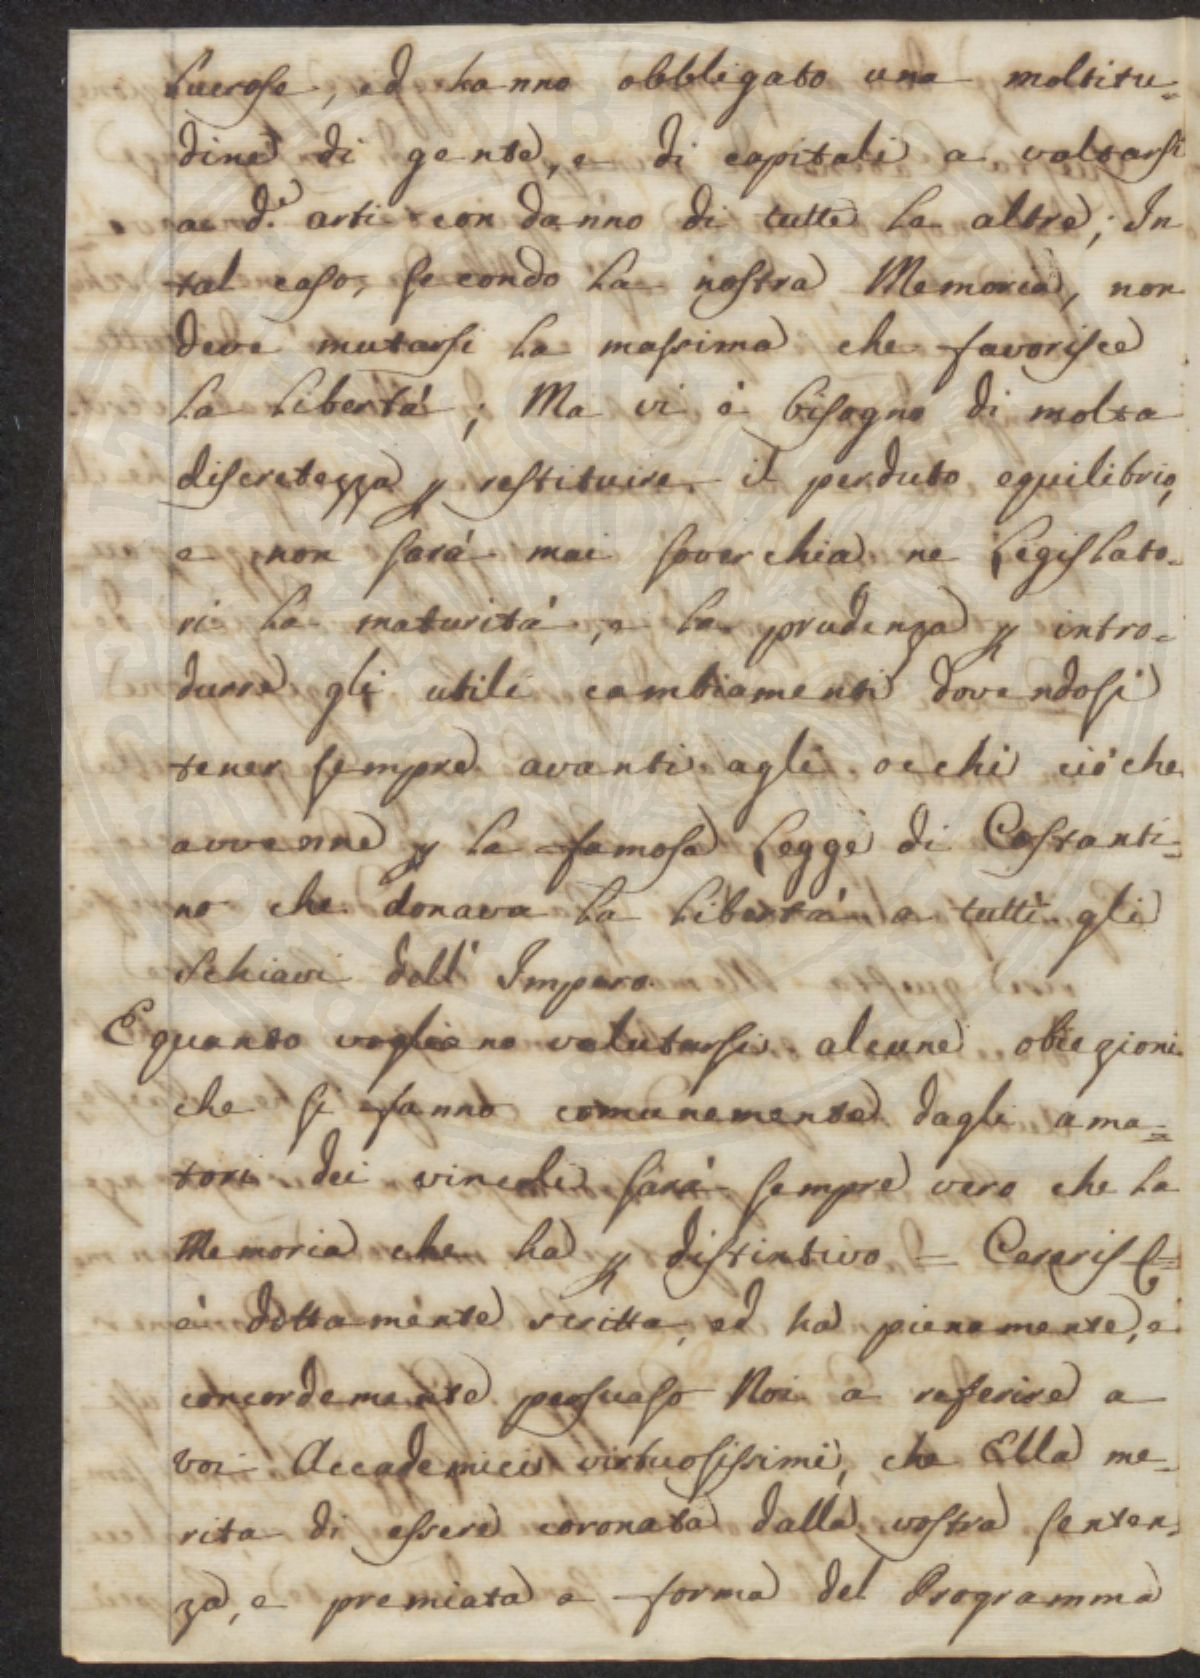 lucrose, ed hanno obbligato una moltitu=
dine di gente, e di capitali a voltarsi
a d.e arti con danno di tutte le altre; In
tal caso, secondo la nostra Memoria, non
deve mutarsi la massima che favorisce
la libertà; Ma vi è bisogno di molta
discretezza p restituire il perduto equilibrio,
e non sarà mai soverchia ne Legislato=
ri la maturità, e la prudenza p intro=
durre gli utili cambiamenti dovendosi
tener sempre avanti agli occhi ciò che
avvenne p la famosa Legge di Costanti=
no che donava la libertà a tutti gli
schiavi dell' Impero.
E quando vogliono valutarsi alcune obiezioni
che si fanno comunemente dagli ama=
tori dei vincoli sarà sempre vero che la
Memoria che ha p distintivo = Cereris =
è dottamente scritta, ed ha pienamente, e
concordemente persuaso Noi a referire a
voi Accademici virtuosissimi, che Ella me=
rita di essere coronata dalla vostra senten=
za, e premiata a forma del Programma